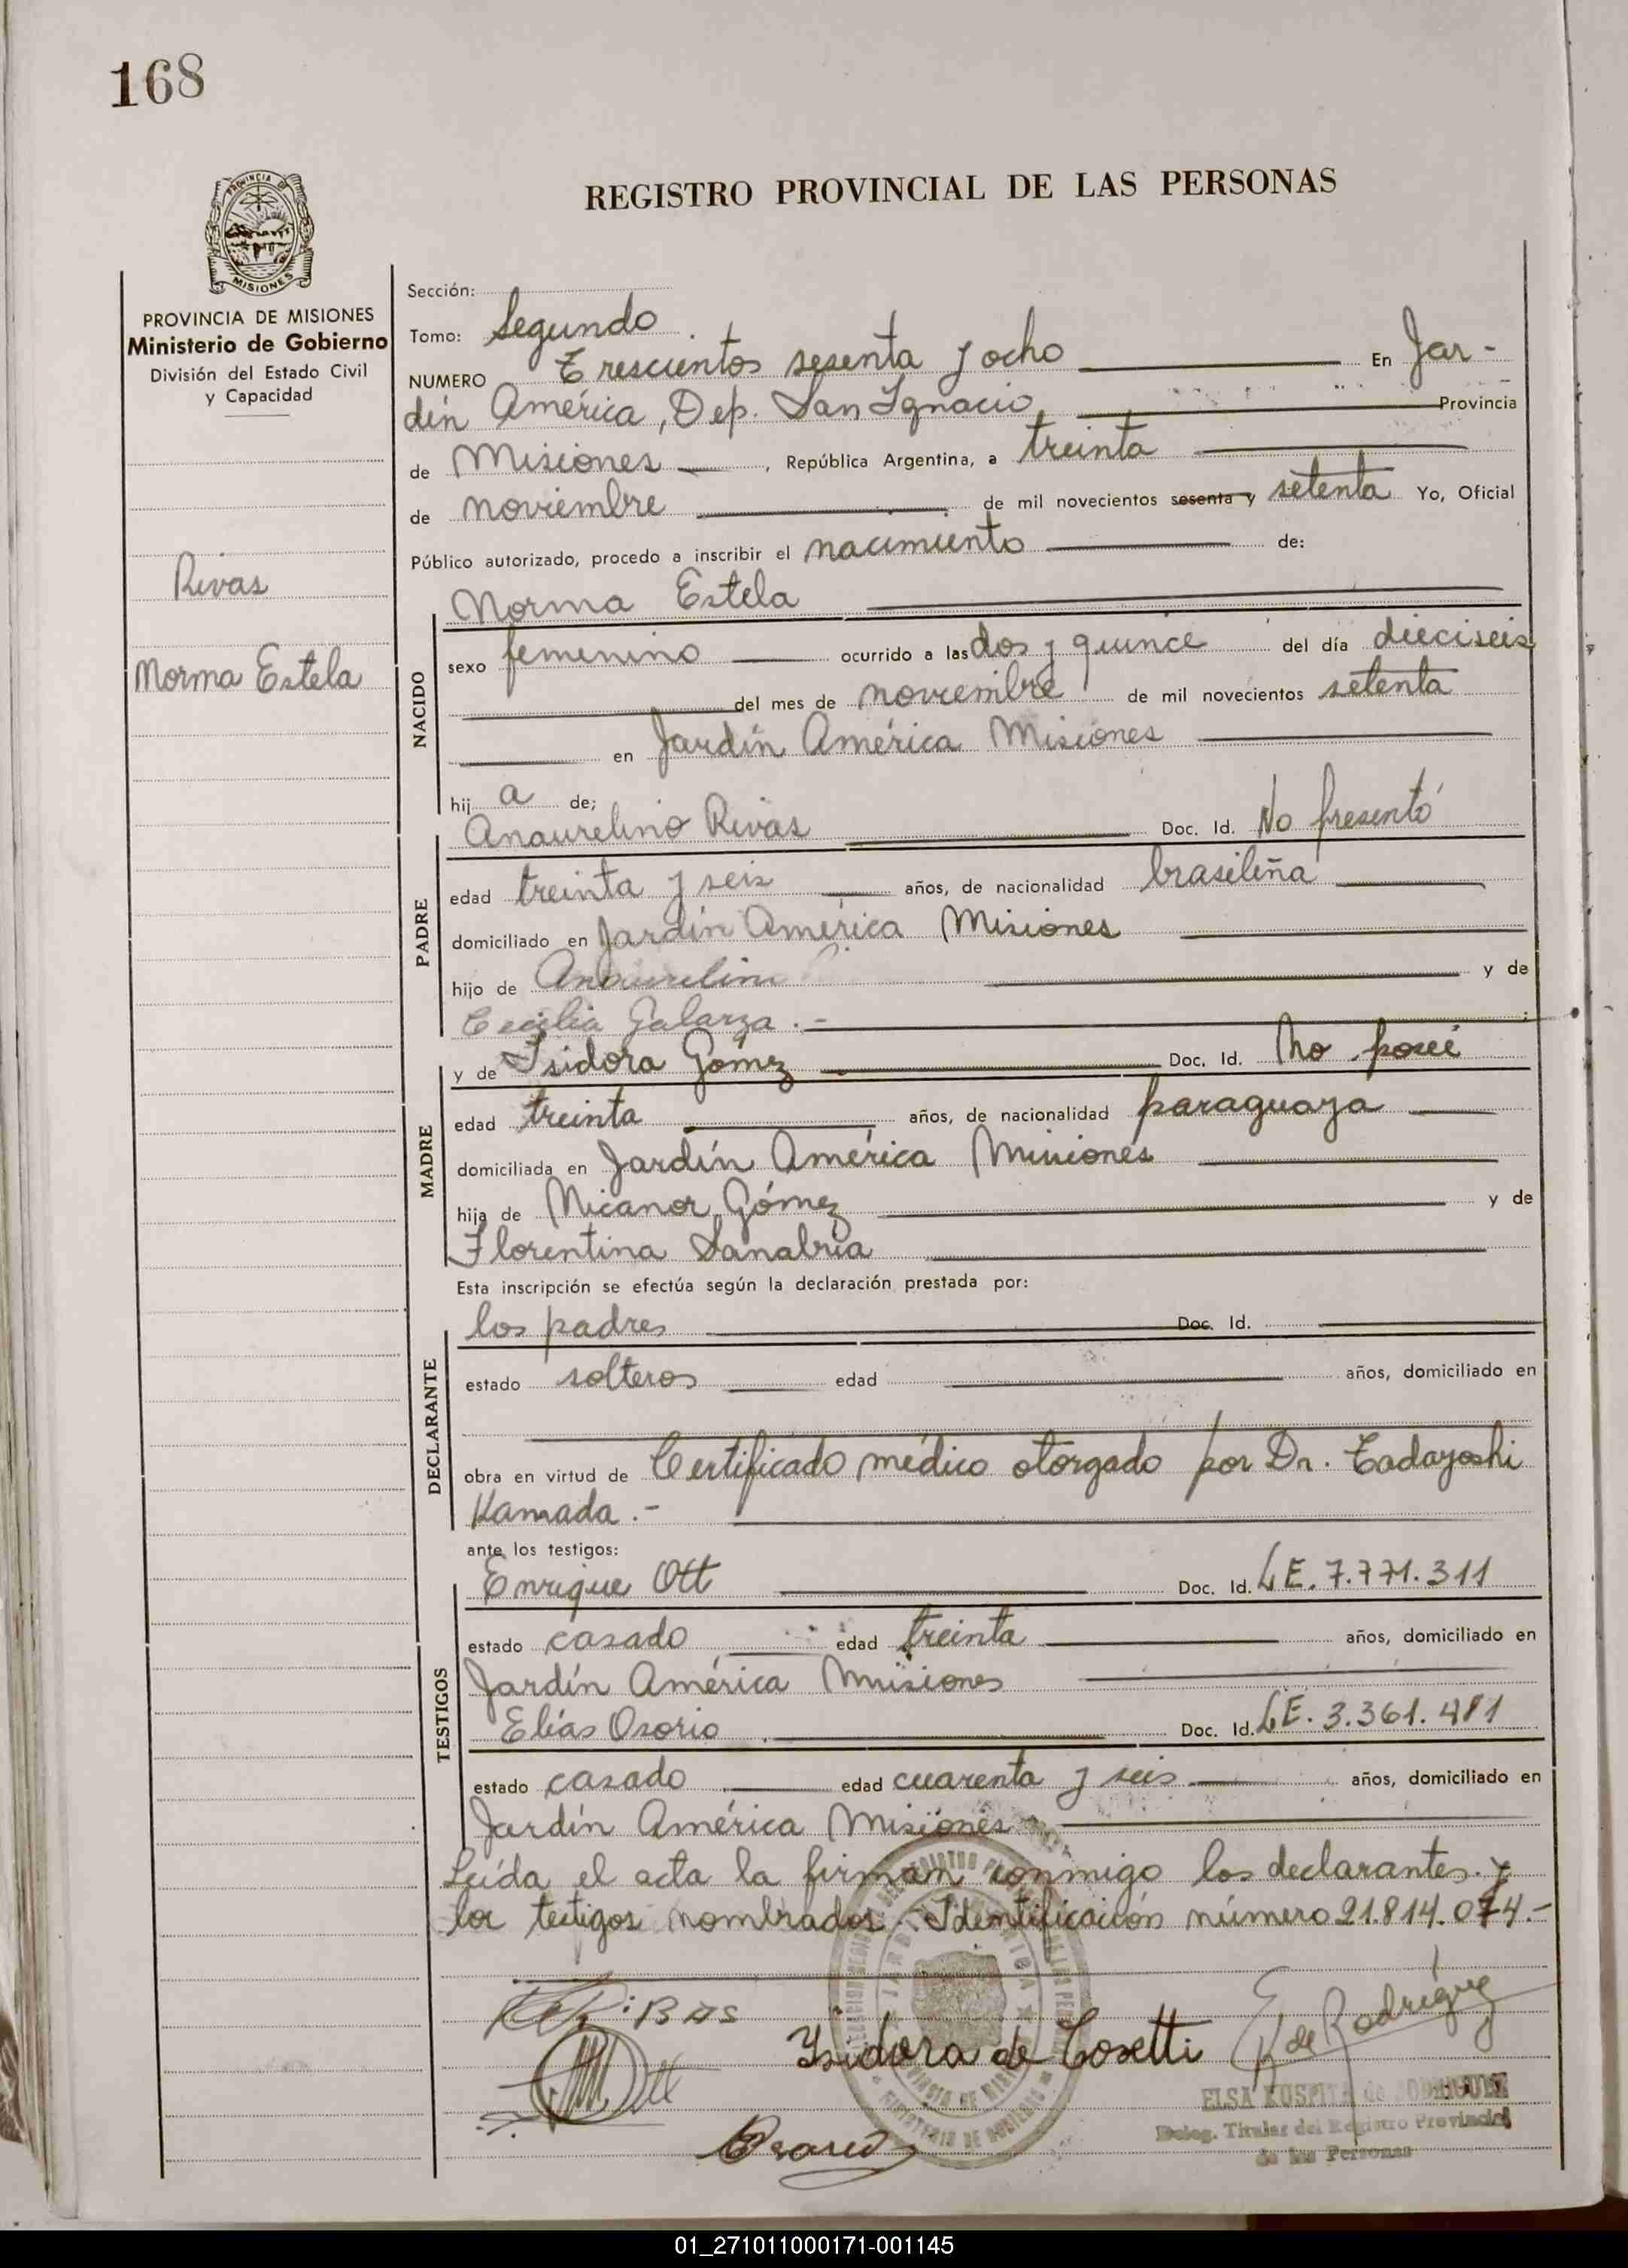 168
PROVINCIA DE
MISIONES
REGISTRO PROVINCIAL DE LAS PERSONAS
PROVINCIA DE MISIONES
Ministerio de Gobierno
División del Estado Civil
y Capacidad
Rivas
Norma Estela
Sección:
Tomo: Segundo
NUMERO Trescientos sesenta y ocho En Jar-
dín América, Dep. San Ignacio Provincia
de Misiones, República Argentina, a treinta
de noviembre de mil novecientos sesenta y setenta Yo, Oficial
Público autorizado, procedo a inscribir el nacimiento de:
Norma Estela
NACIDO
sexo femenino ocurrido a las dos y quince del día dieciseis
del mes de noviembre de mil novecientos setenta
en Jardín América Misiones
hij a de;
Anaurelino Rivas Doc. Id. No presentó
PADRE
edad treinta y seis años, de nacionalidad brasileña
domiciliado en Jardín América Misiones
hijo de Anaurelino y de
Cecilia Galarza.-
y de Isidora Gómez Doc. Id. No posee
MADRE
edad treinta años, de nacionalidad paraguaya
domiciliada en Jardín América Misiones
hija de Nicanor Gómez y de
Florentina Sanabria
Esta inscripción se efectúa según la declaración prestada por:
los padres Doc. Id.
DECLARANTE
estado solteros edad años, domiciliado en
obra en virtud de Certificado médico otorgado por Dr. Tadayoshi
Kamada.-
ante los testigos:
Enrique Ott Doc. Id. L E. 7.771.311
TESTIGOS
estado casado edad treinta años, domiciliado en
Jardín América Misiones
Elías Osorio Doc. Id. L E. 3.361.481
estado casado edad cuarenta y seis años, domiciliado en
Jardín América Misiones
Leída el acta la firman conmigo los declarantes y
los testigos nombrados. Identificación número 21.814.074.-
Ribas
Isidora de Cosetti
E K de Rodríguez
Ott
ELSA KUSPITA de RODRIGUEZ
Deleg. Titular del Registro Provincial
de las Personas
01_271011000171-001145